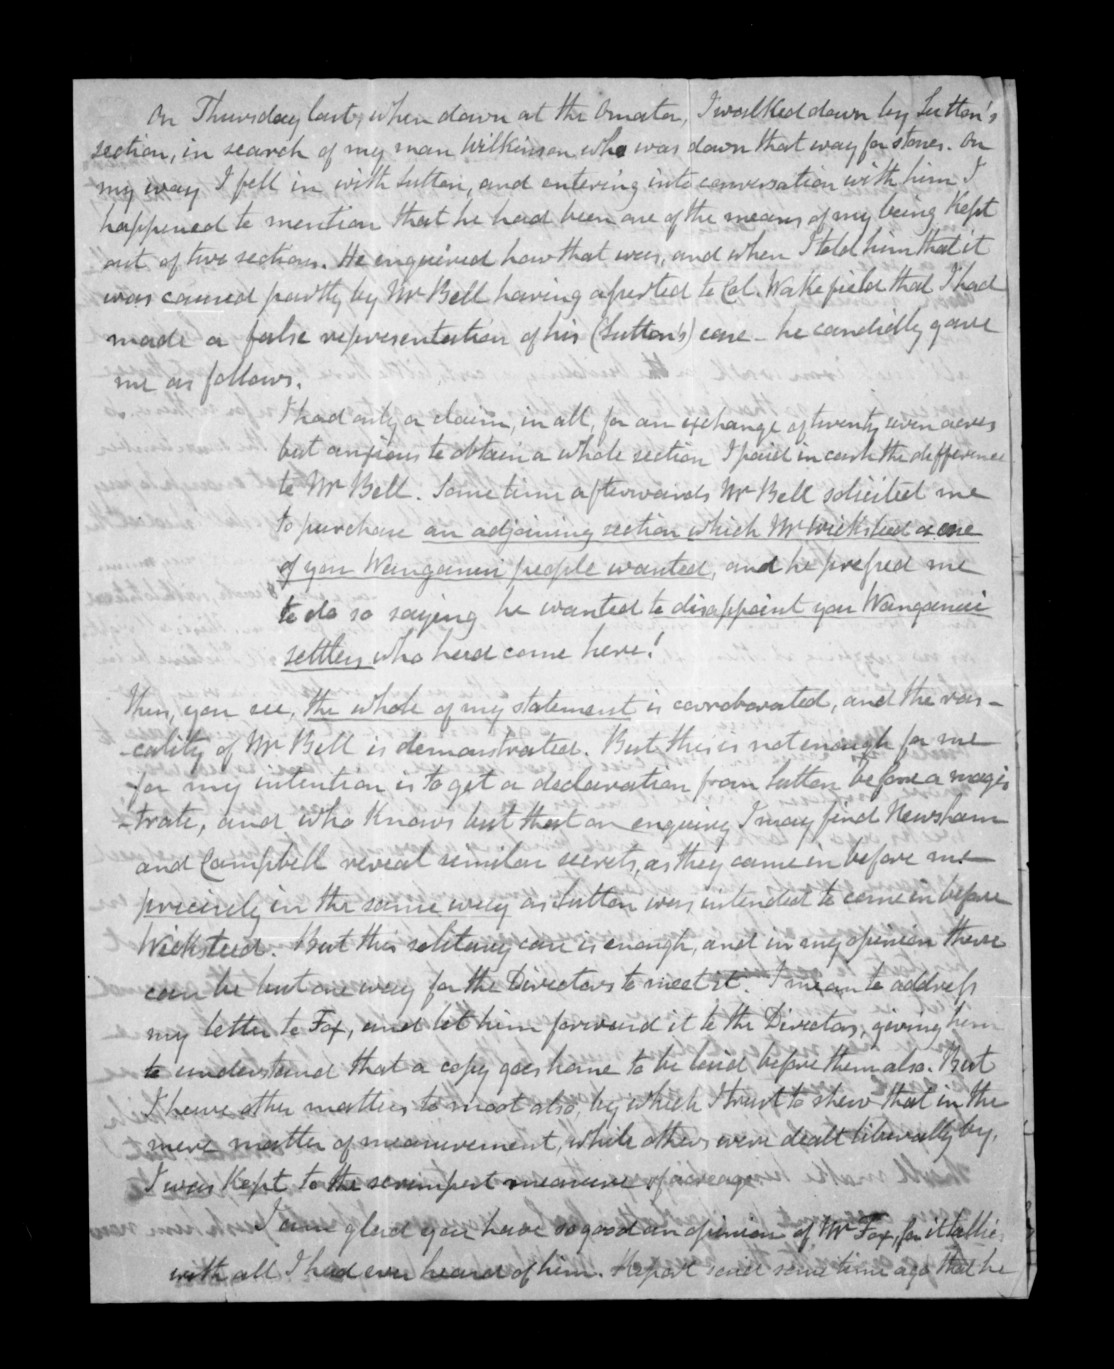 On Thursday last, when down at the Omata, I walked down by Sutton's
section, in search of my man Wilkinson who was down that way for stones. On
my way I fell in with Sutton, and entering into conversation with him I
happened to mention that he had been one of the means of my being Kept
out of two sections. He enquired how that was, and when I told him that it
was caused partly by Mr Bell having asserted to Col. Wakefield that I had
made a false representation of his (Sutton's) case - he candidly gave
me as follows.
I had only a claim, in all, for an exchange of twenty seven acres
but anxious to obtain a whole section I paid in cash the difference
to Mr Bell. Some time afterwards Mr Bell solicited me
to purchase an adjoining section which Mr Wicksteed or one
of you Wanganui people wanted, and he pressed me
to do so saying he wanted to disappoint you Wanganui
settlers who had come here!
Thus, you see, the whole of my statement is corroborated, and the ras-
-cality of Mr Bell is demonstrated. But this is not enough for me
for my intention is to get a declaration from Sutton before a magis
-trate, and who Knows but that on enquiry I may find Newsham
and Campbell reveal similar secrets, as they came in before me
precisely in the same way as Sutton was intended to come in before
Wicksteed. But this solitary case is enough, and in my opinion there
can be but one way for the Directors to meet it. I mean to address
my letter to Fox, and let him forward it to the Directors, giving him
to understand that a copy goes home to be laid before them also. But
I have other matters to moot also, by which I trust to shew that in the
mere matter of measurement, while others were dealt liberally by,
I was Kept to the scrimpest measure of acreage
I am glad you have so good an opinion of Mr Fox, for it tallies
with all I had ever heard of him. Report said some time ago that he